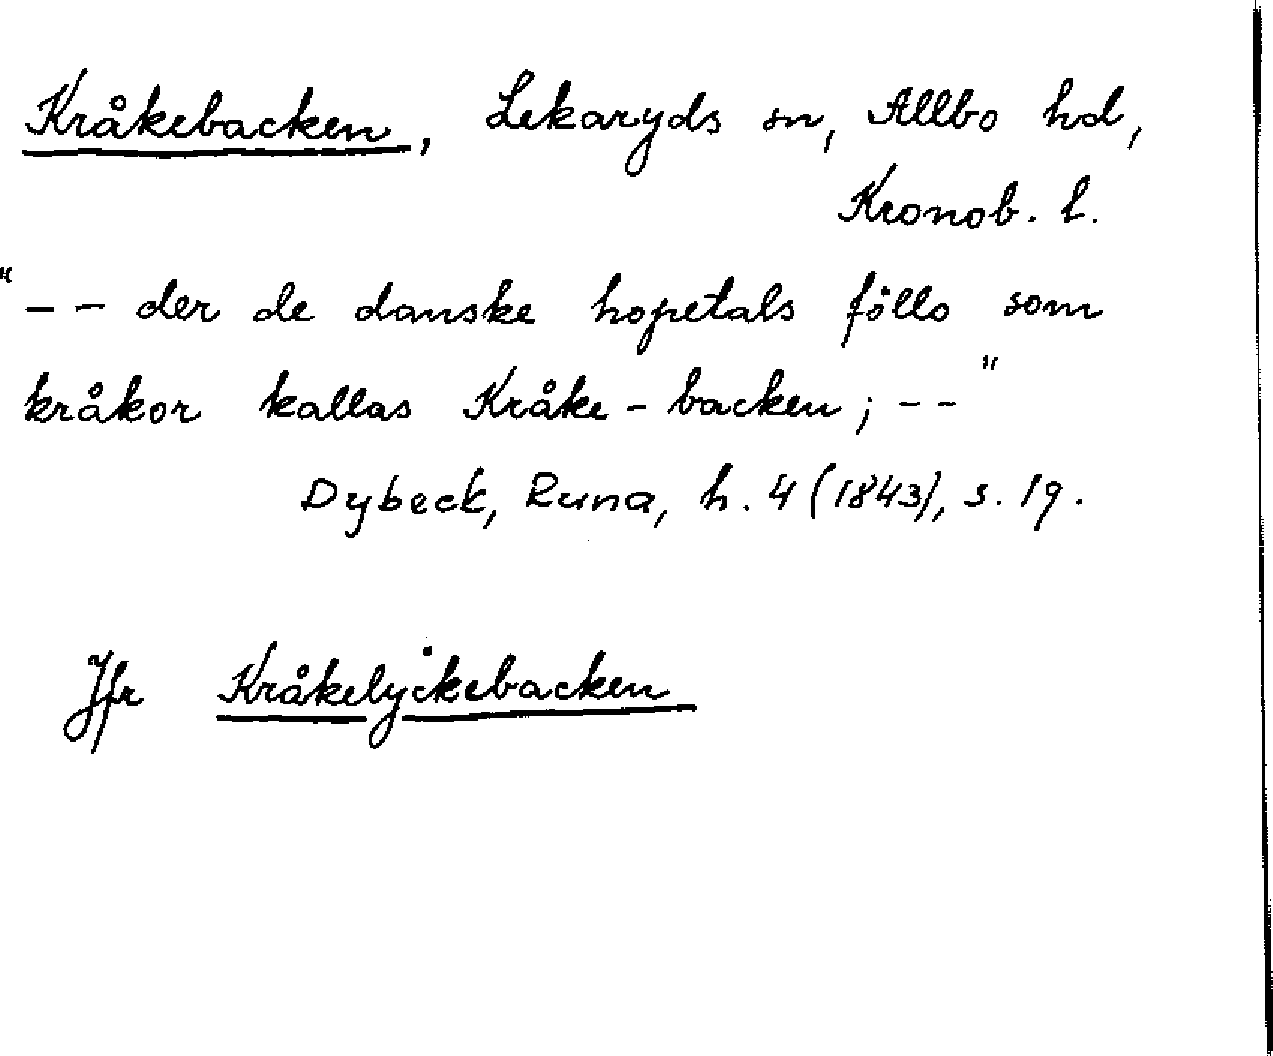 Kråkebacken, Lekaryds sn, Allbo hd,
Kronob. l.
"-- der de danske hopetals föllo som
kråkor kallas Kråke-backen; --"
Dybeck, Runa, h. 4 (1843), s. 19.
Jfr Kråkelyckebacken